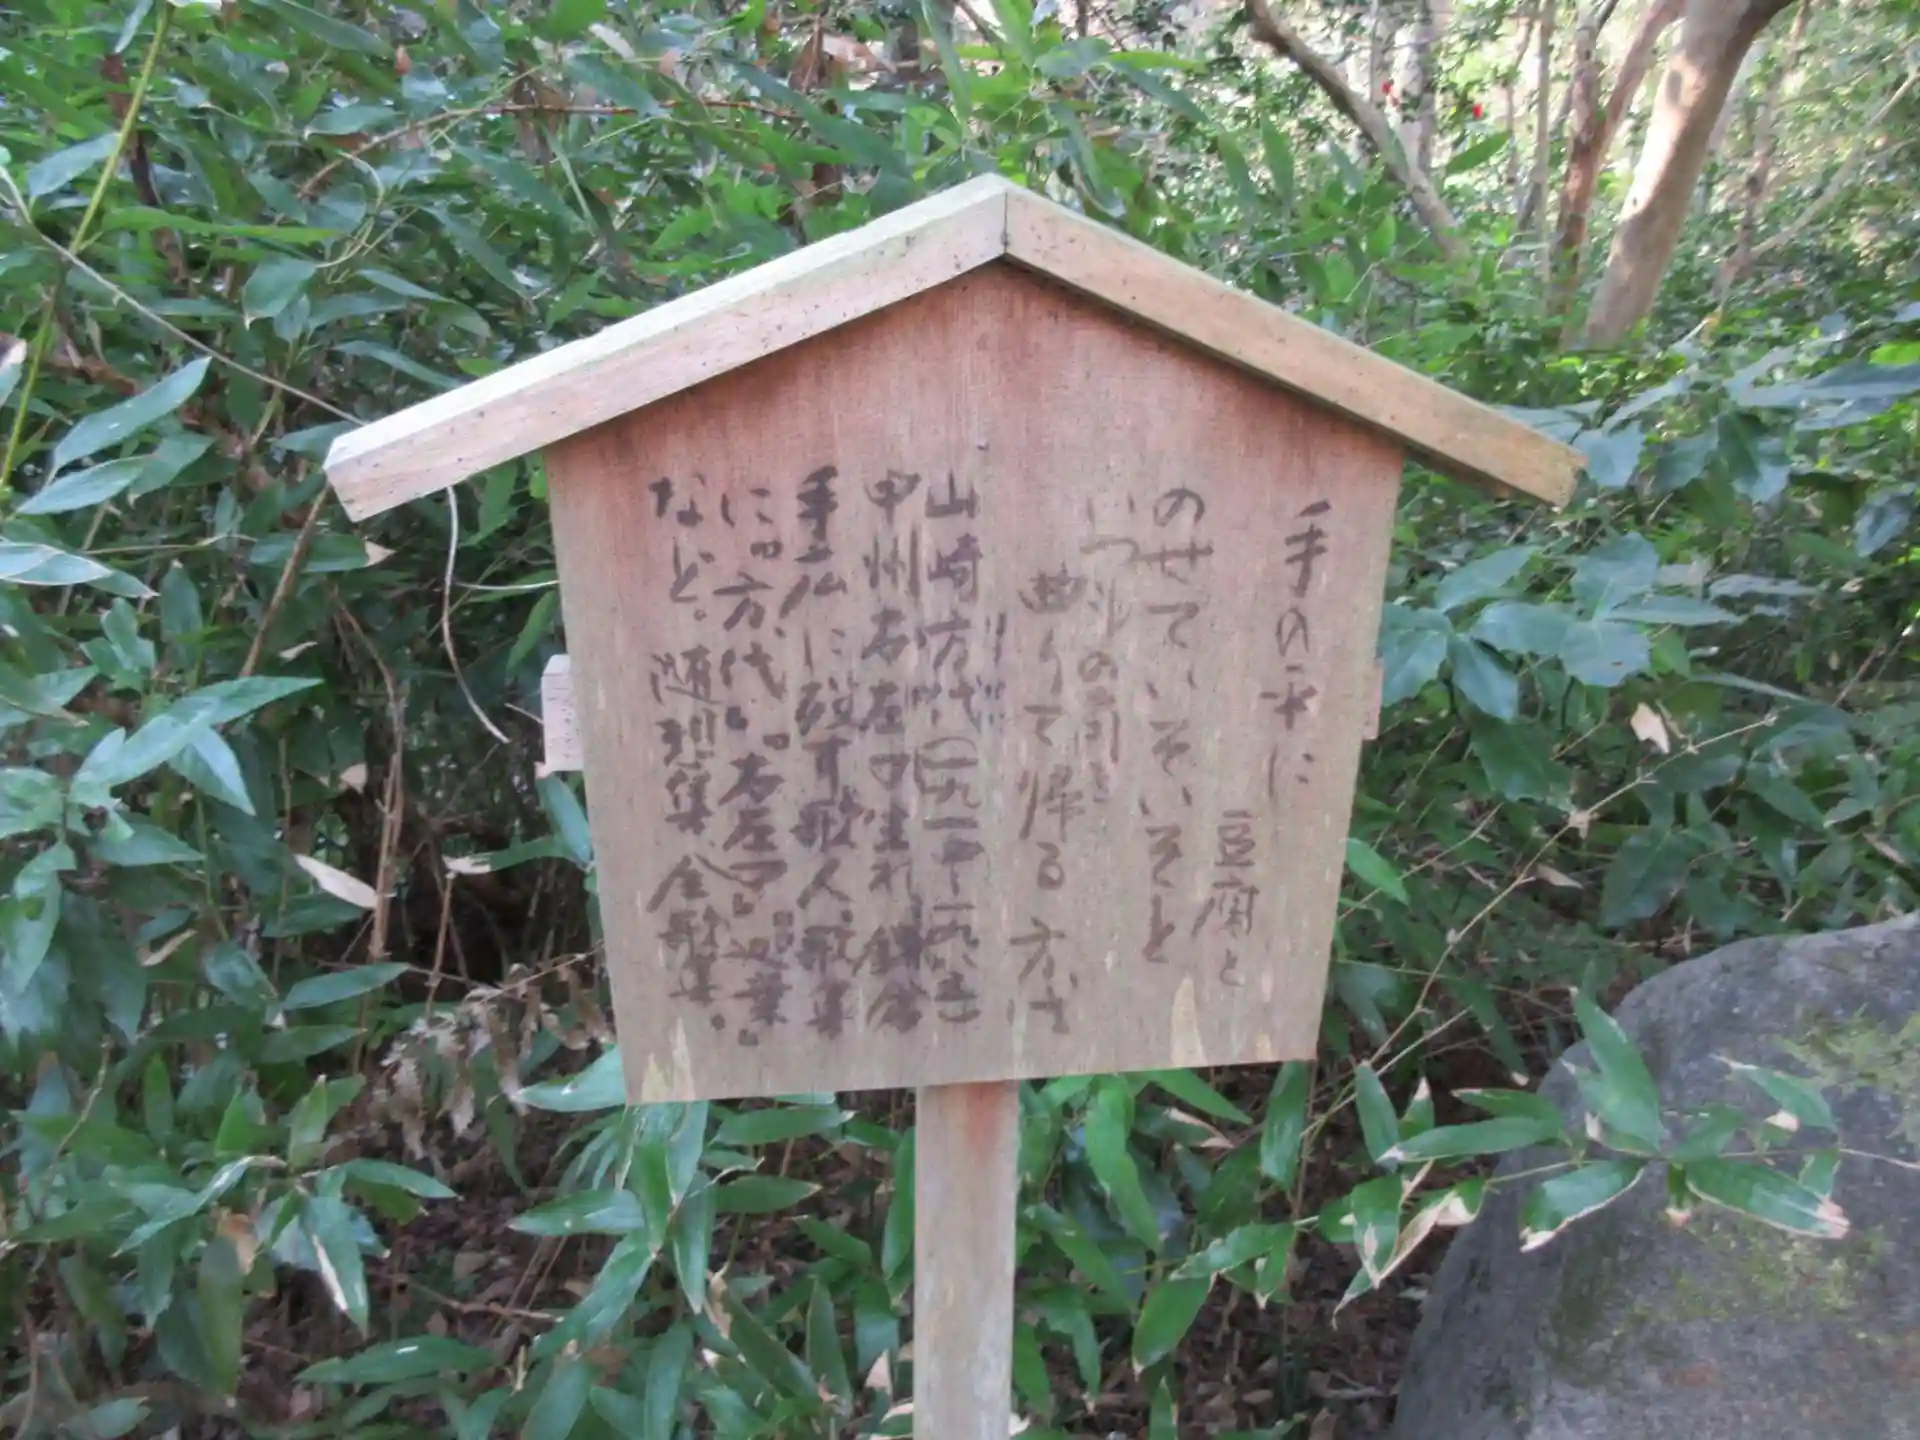 手の平に
豆腐を
のせていそいそと
いつもの角を
曲りて帰る 方代
山崎方代(一九一四-一九八五)
甲州右左口生れ 鎌倉
手広に歿す 歌人、歌集
に『方代』『右左口』『迦葉』
など。随想集、全歌集。